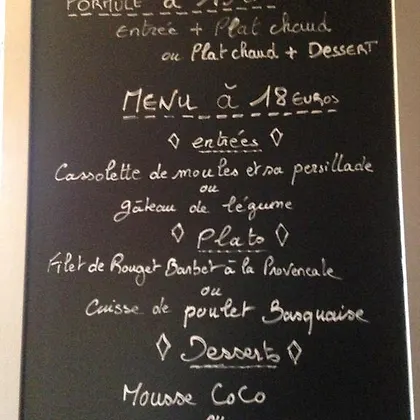 FORMULE à 15
Entrée + Plat chaud
ou Plat chaud + DESSERT
MENU à 18 EUROS
entrées
Cassolette de moules et sa persillade
ou
gâteau de légume
Plats
Filet de Rouget Barbet à la Provencale
ou
Cuisse de poulet Basquaise
Desserts
Mousse CoCo
ou